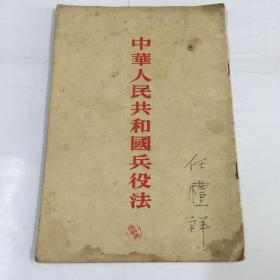 中華人民共和國兵役法
任禮祥